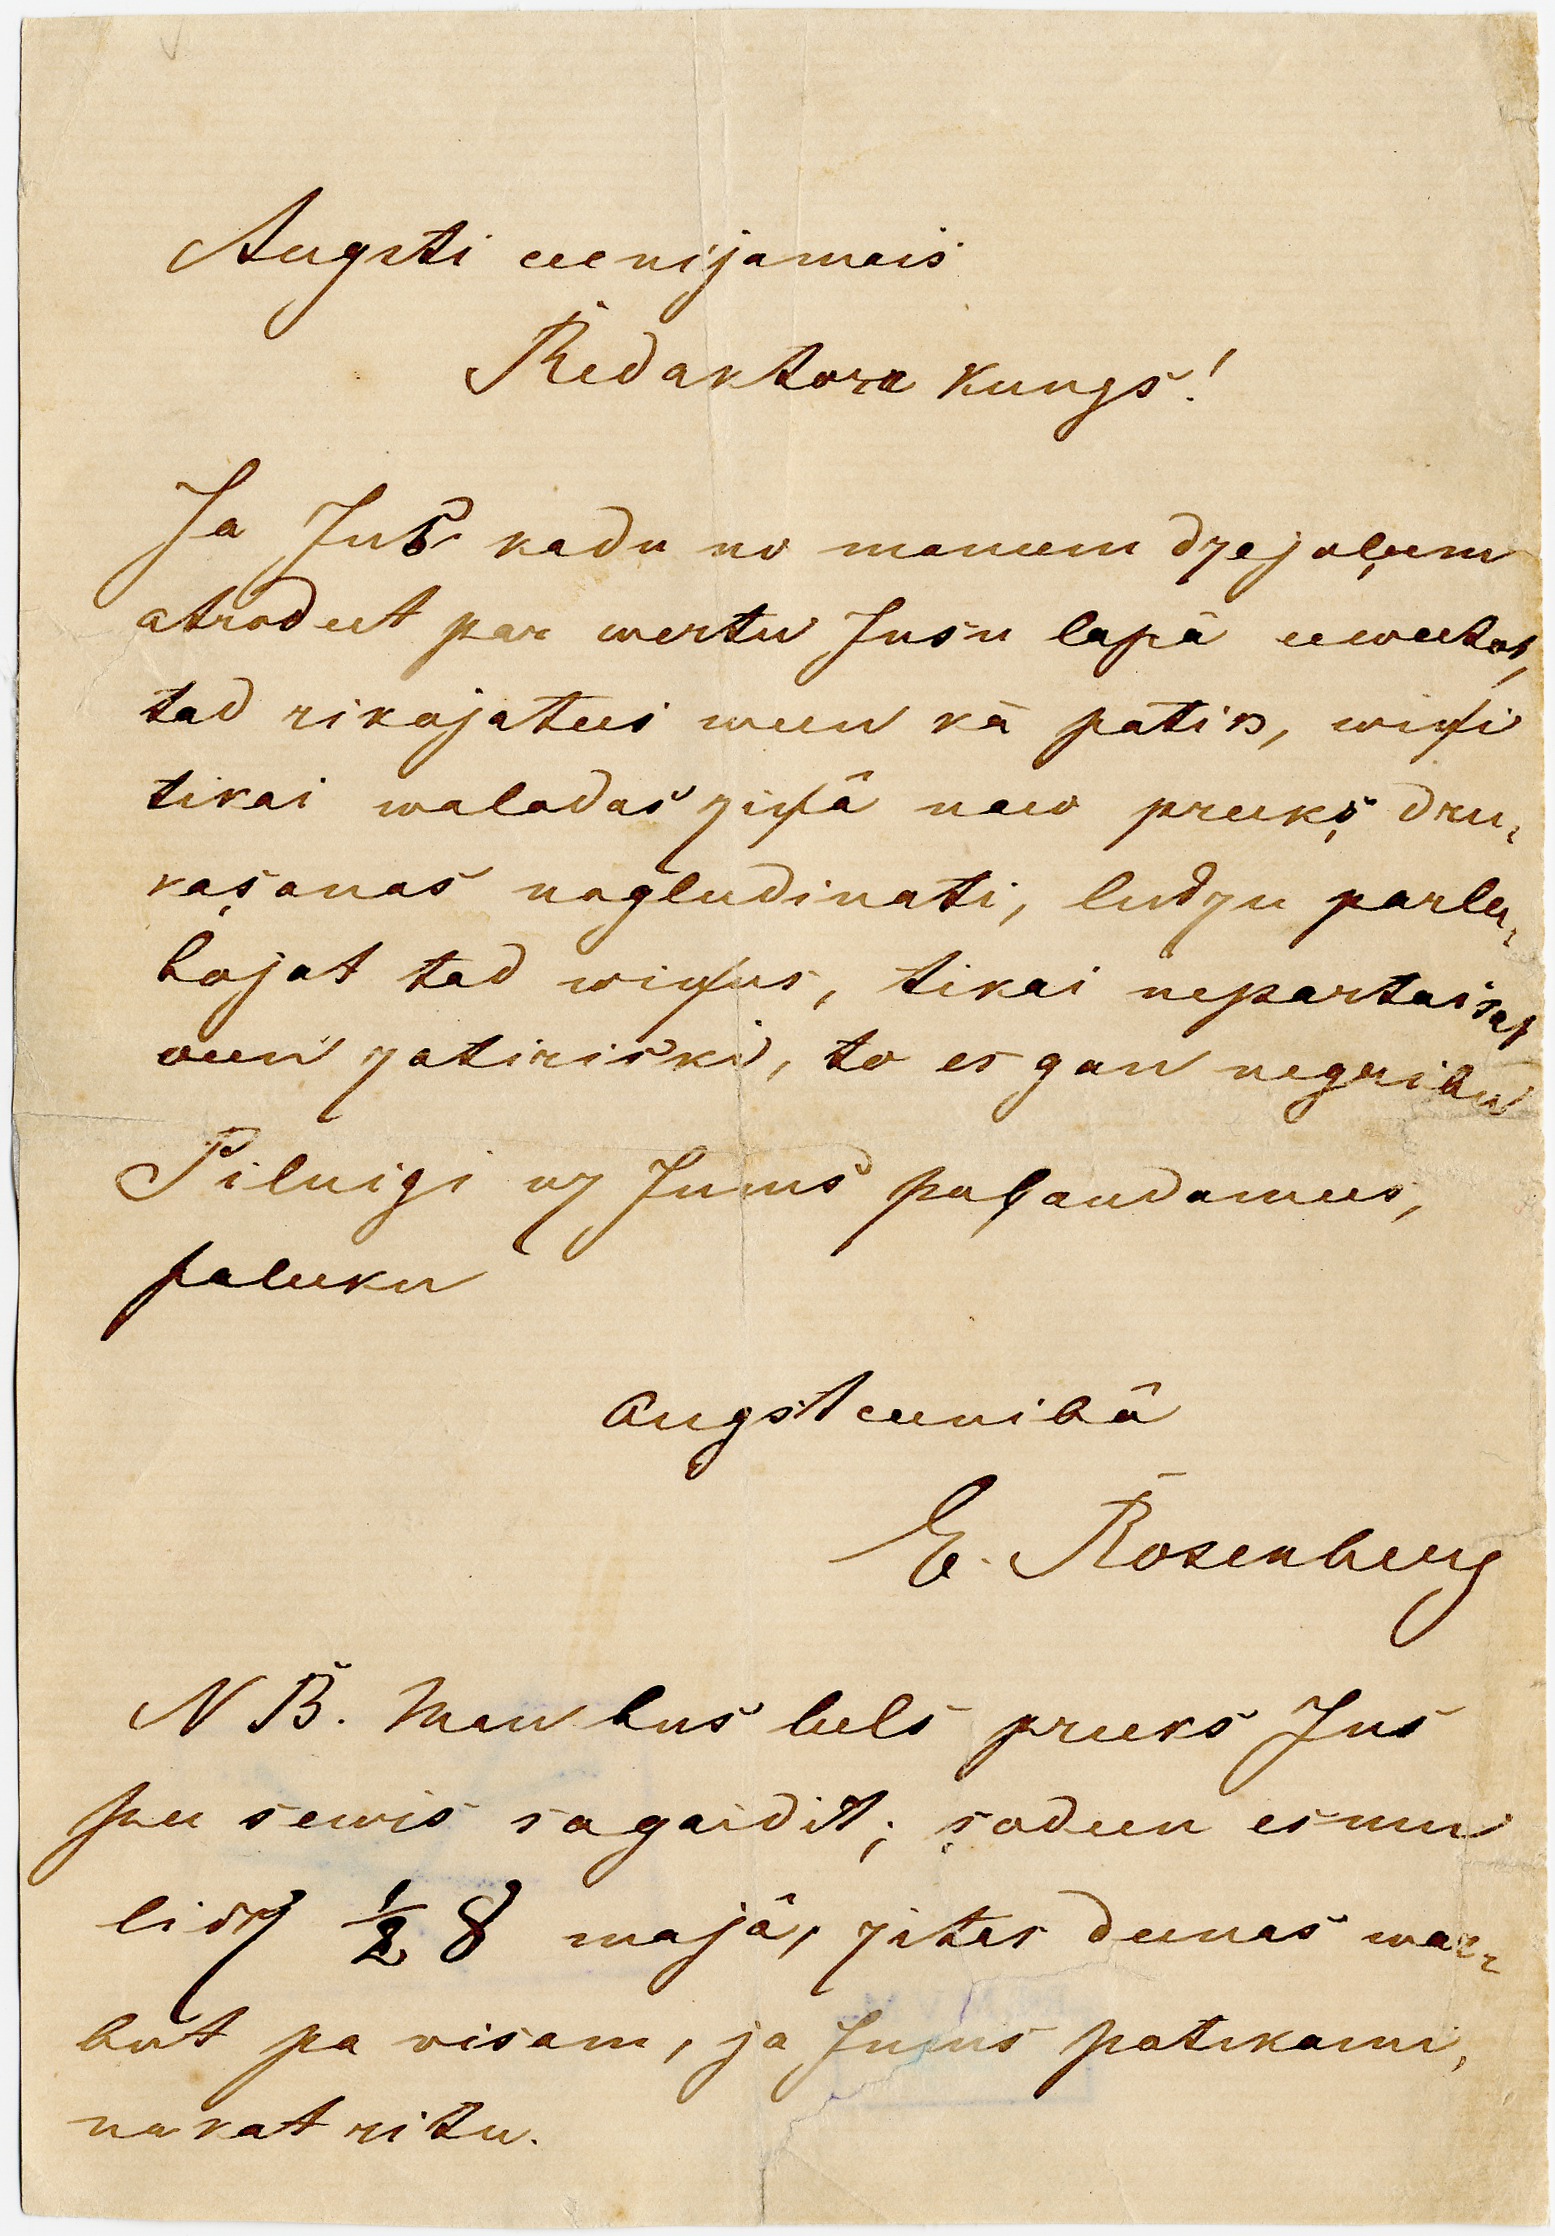 Augsti ceenijamais
Redaktora kungs!
Ja Jus kadu no maneem dzejoļeem
atrodeet par wertu Jusu lapâ eeweetot,
tad rikojatees ween kâ patik, wiņi
tikai walodas ziņâ naw preekş dru-
kaşanas nogludinati, ludzu parla-
bojat tad wiņus, tikai nepartaisat
ween satiriski, to es gan negribu
Pilnigi uz Jums paļaudamees,
paleeku
augstceenibâ
E. Rosenberg
NB. Man bus leels preeks Jus
pee sewis sagaidit; şodeen esmu
lidz ½ 8 majâ, zites deenas war-
but pa visam, ja Jums patikami,
nakat ritu.